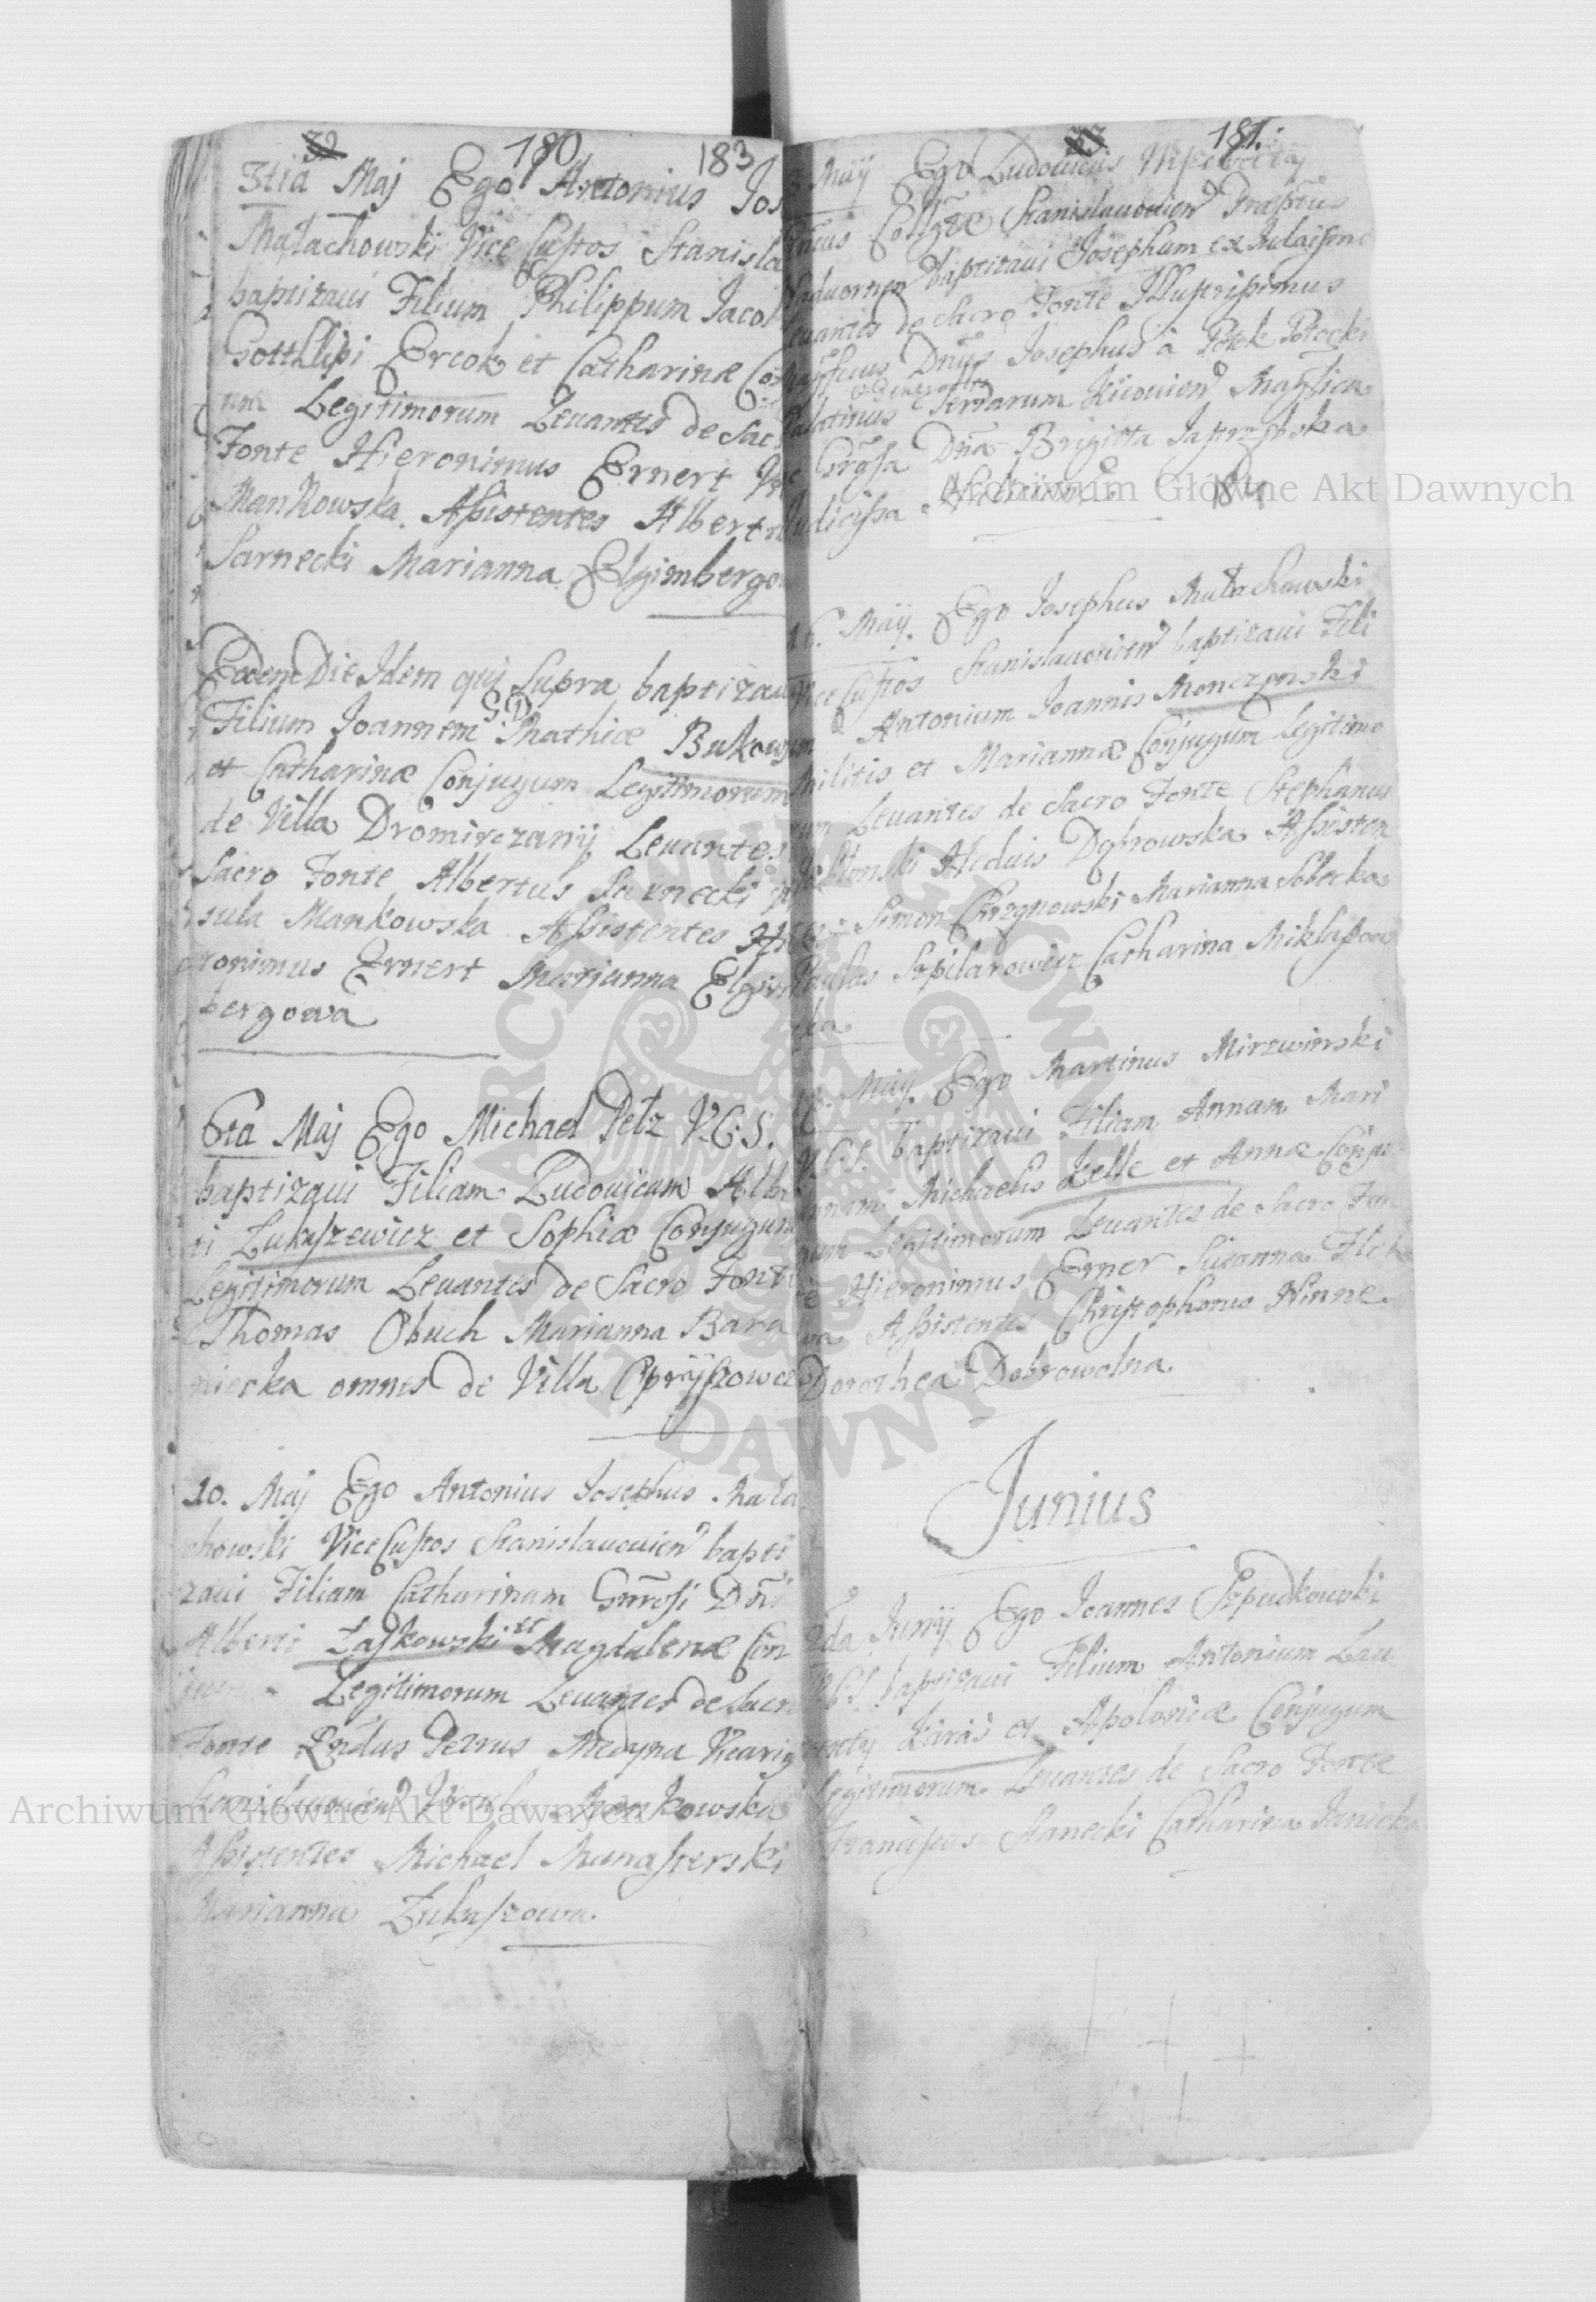 32 180 183
3tia Maj Ego Antonius Jos
Małachowski Vice Custos Stanisla
baptizaui Filium Philippum Jacob
Gottlipi Ercok et Catharinæ Con
um Legitimorum Leuantes de Sac
Fonte Hieronimus Ernert
Mankowska. Assistentes Albert
Sarnecki Marianna Elgimbergo
Eodem Die Idem qui Supra baptizaui
Filium Joannem G: D: Mathiæ Bukows
et Catharinæ Conjugum Legitimorum
de Villa Dromirczanÿ Leuantes
Sacro Fonte Albertus Sarnecki
sula Mankowska Assistentes Hie
ronimus Ernert Marianna Elgim
bergowa
6ta Maj Ego Michael Pelz V.C.S.
baptizaui Filiam Ludouicam Alber
ti Łukaszewicz et Sophiæ Conjugum
Legitimorum Leuantes de Sacro Fonte
Thomas Obuch Marianna Bara
niecka omnes de Villa Oprÿszowce
10. Maj Ego Antonius Josephus Mała
chowski ViceCustos Stanislauouien bapti
zaui Filiam Catharinam Gnrosi Dni
Alberti Laskowski et Magdalenæ Con
Legitimorum Leuantes de Sacro
Fonte Rndus Petrus Medyna Vicariq
Stanislauouien Mankowska
Assistentes Michael Manasterski
Marianna Łukaszowa.
33 181.
Maÿ Ego Ludouicus
Collgtæ Stanislauouien Præptus
baptizaui Josephum ex Judaismo
Leuantes de Sacro Fonte Illustrissimus
Dnus Josephus a Potok Potocki
Palatinus Terrarum Kiiouien Magfica
Grosa Dna Brigitta Jastrzębska
Judicissa
184
16. Maÿ. Ego Josephus Małachowski
Vice Custos Stanislauouien baptizaui Fili
um Antonium Joannis Monczynski
Militis et Mariannæ Conjugum Legitimo
rum Leuantes de Sacro Fonte Stephanus
Heduis Dąbrowska Assisten
tes Simon Chrzanowski Marianna Sobecka
Paulus Szpilarowicz Catharina Miklaszow
ska
Maÿ. Ego Martinus Mirzwinski
V.C.S. baptizaui Filiam Annam Mari
annam Michaelis Zelle et Annæ Conju
gum Legitimorum Leuantes de Sacro Fon
te Hieronimus Erner Susanna
wa Assistentes Christophorus Hinne
Dorothea Dobrowolna
Junius
2da Junÿ Ego Joannes Szpudkowski
VCS baptizaui Filium Antonium Lau
rentÿ Karaś et Apoloniæ Conjugum
Legitimorum Leuantes de Sacro Fonte
Franciscus Stanecki Catharina Janicka
Archiwum Główne Akt Dawnych
Archiwum Główne Akt Dawnych
ARCHIWUM GŁÓWNE AKT DAWNYCH